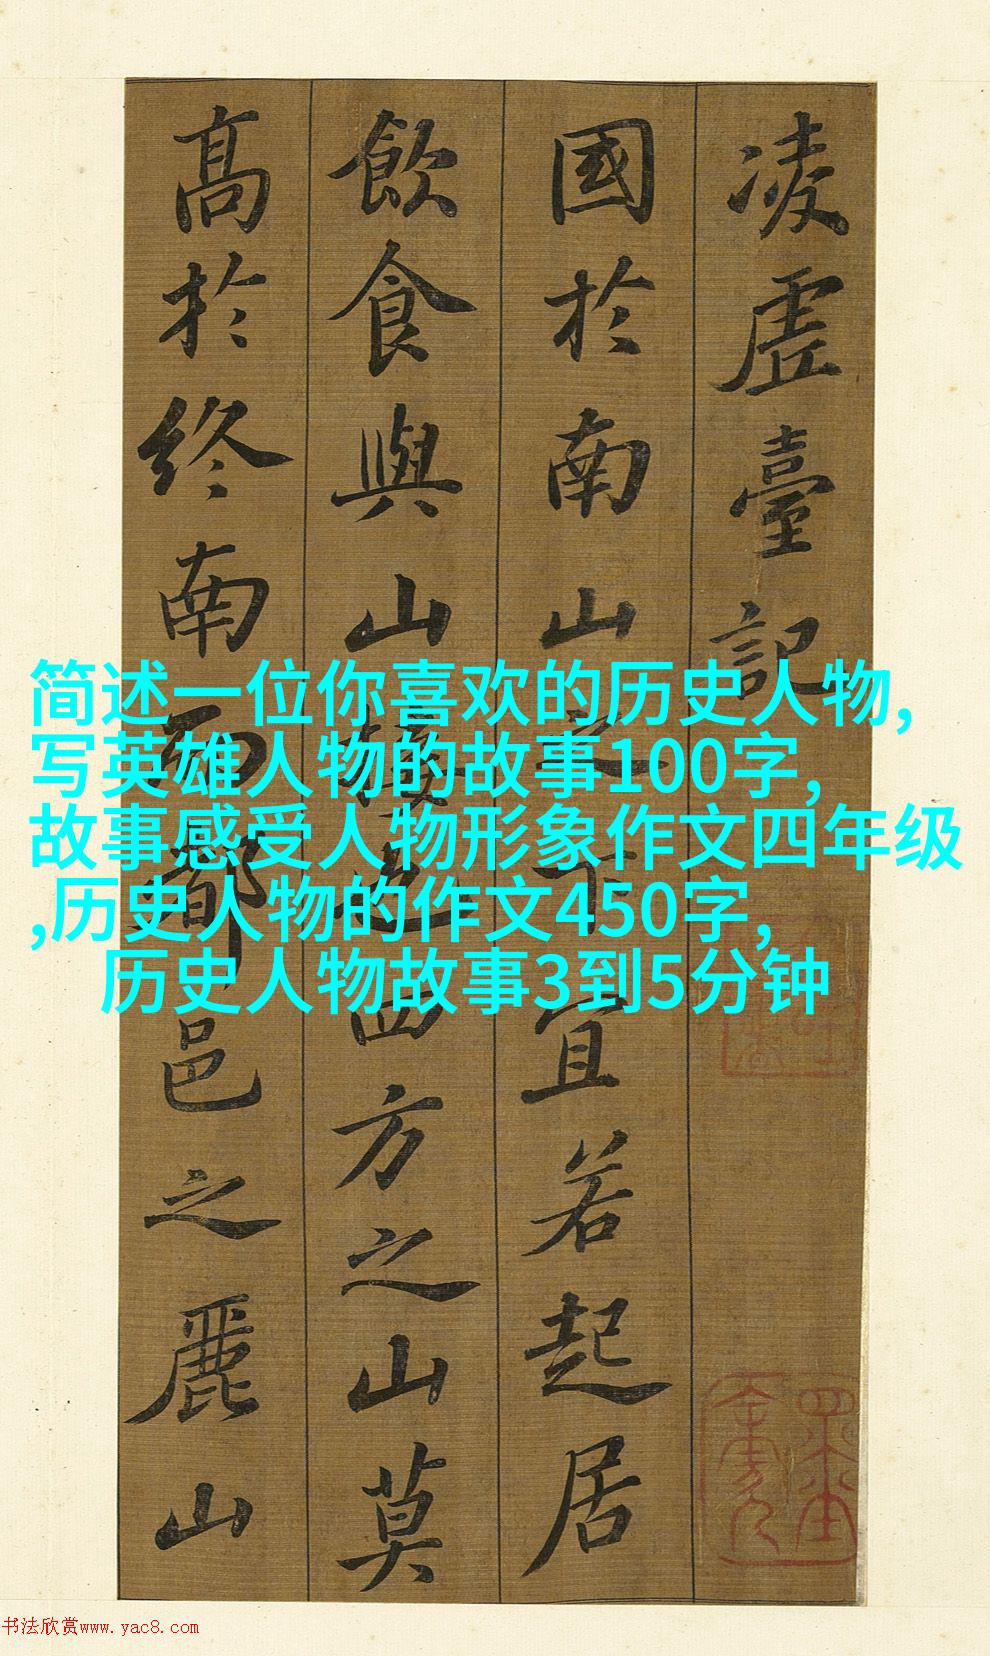 凌虚臺記
國於南山之下宜若起居
飲食與山接也四方之山莫
高於終南而都邑之麗山
简述一位你喜欢的历史人物,
写英雄人物的故事100字,
故事感受人物形象作文四年级
,历史人物的作文450字,
历史人物故事3到5分钟
书法欣赏www.yac8.com